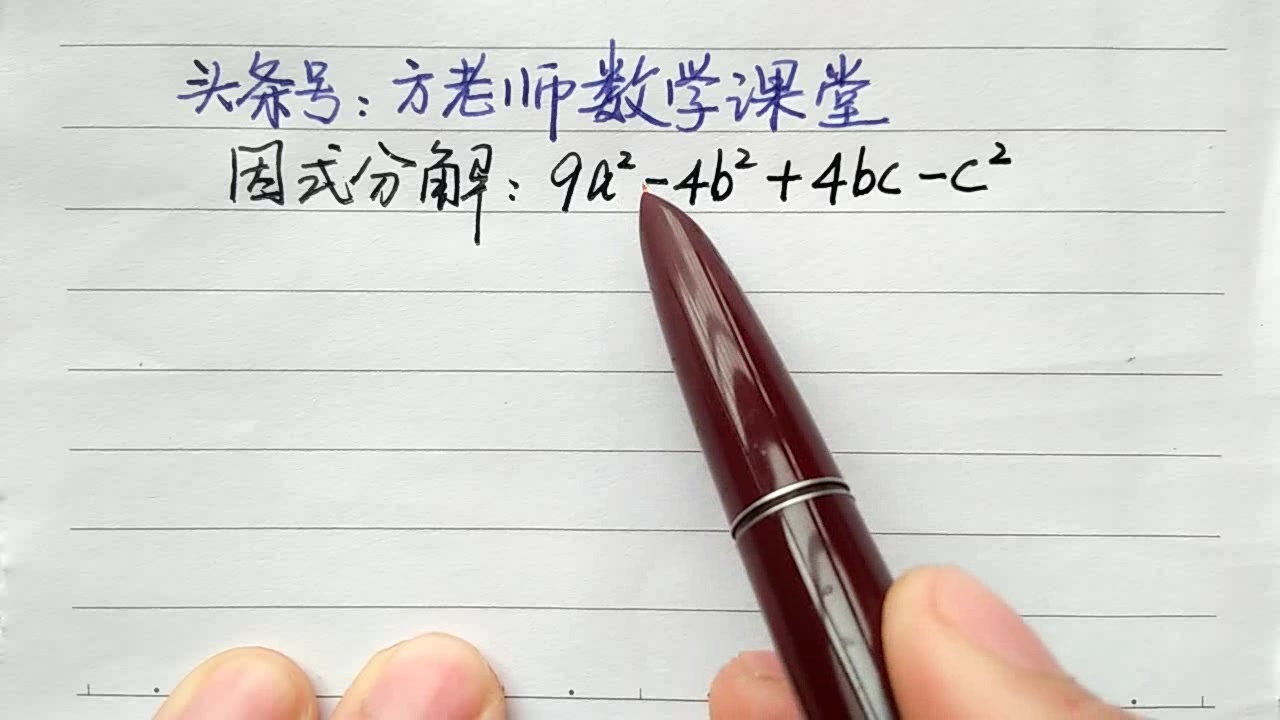 头条号：方老师数学课堂
因式分解：9a²-4b²+4bc-c²